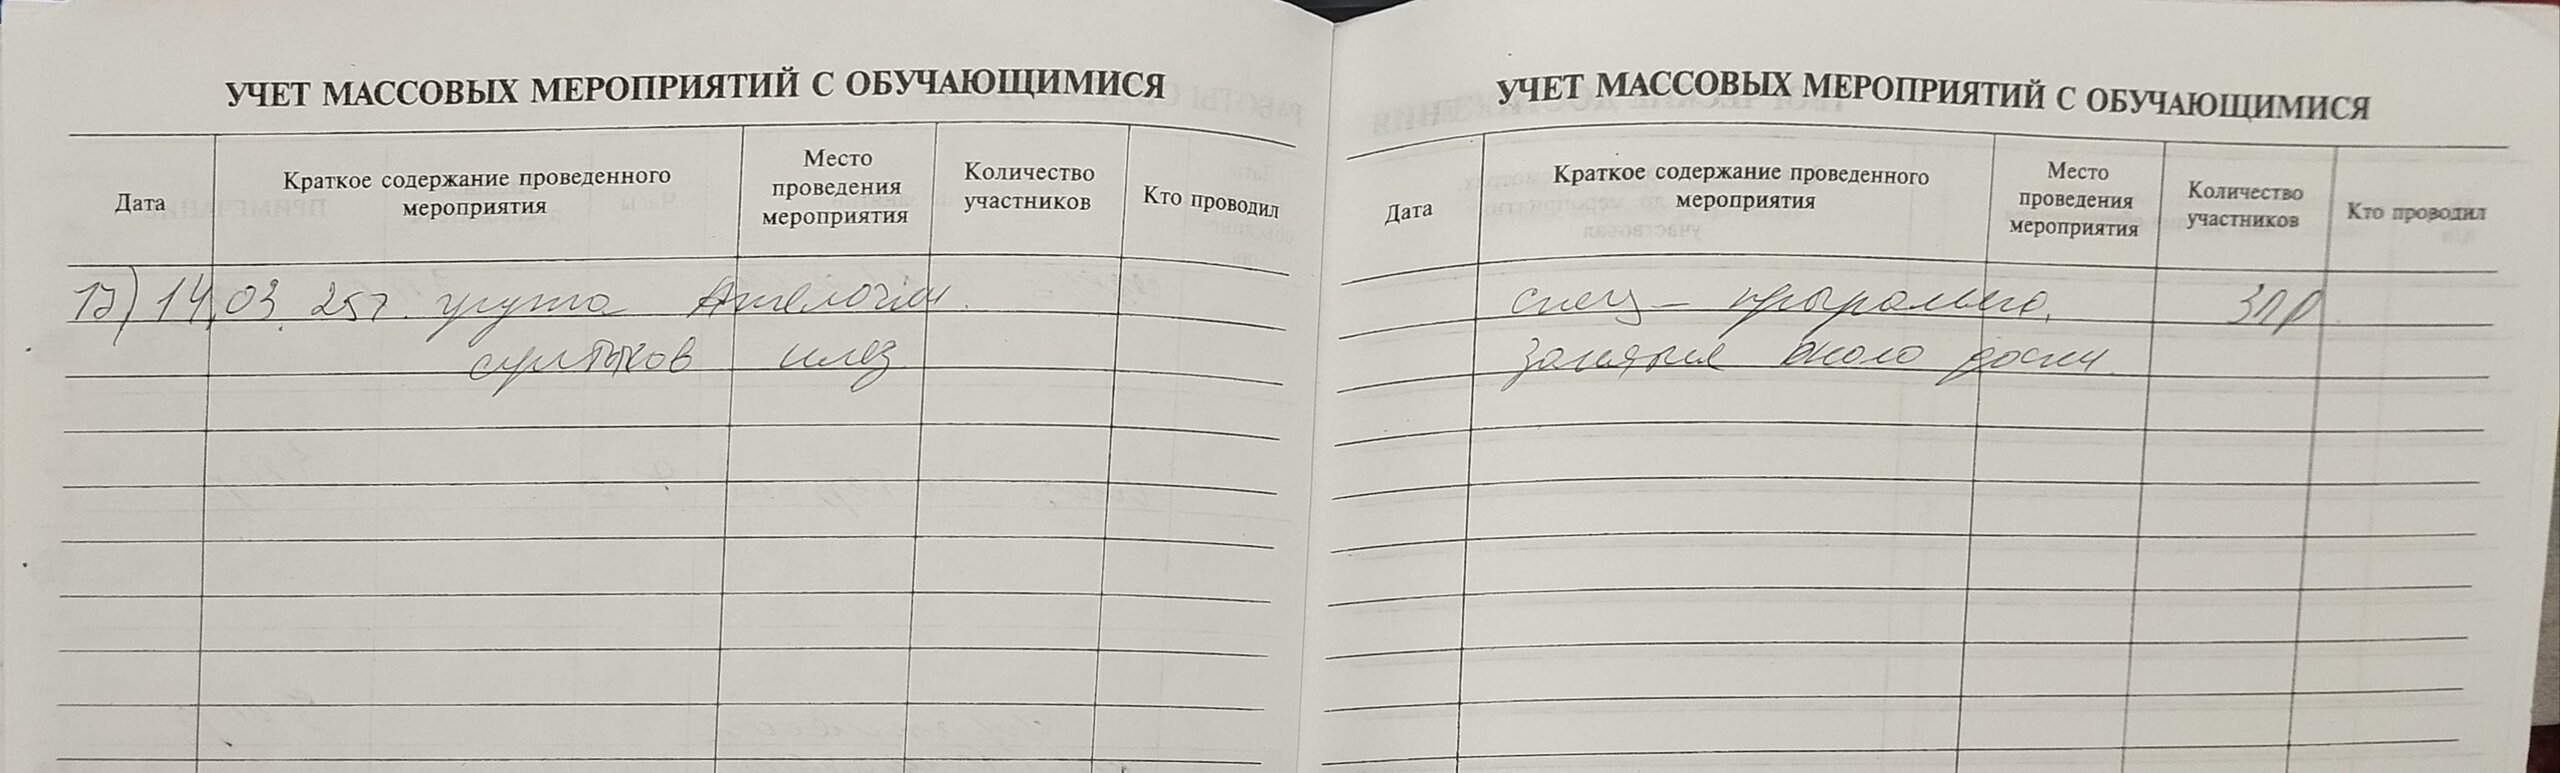 УЧЕТ МАССОВЫХ МЕРОПРИЯТИЙ С ОБУЧАЮЩИМИСЯ
Дата
Краткое содержание проведенного
мероприятия
Место
проведения
мероприятия
Количество
участников
Кто проводил
12) 14.03 25г. группа
УЧЕТ МАССОВЫХ МЕРОПРИЯТИЙ С ОБУЧАЮЩИМИСЯ
Дата
Краткое содержание проведенного
мероприятия
Место
проведения
мероприятия
Количество
участников
Кто проводил
спец-
занятия около доски.